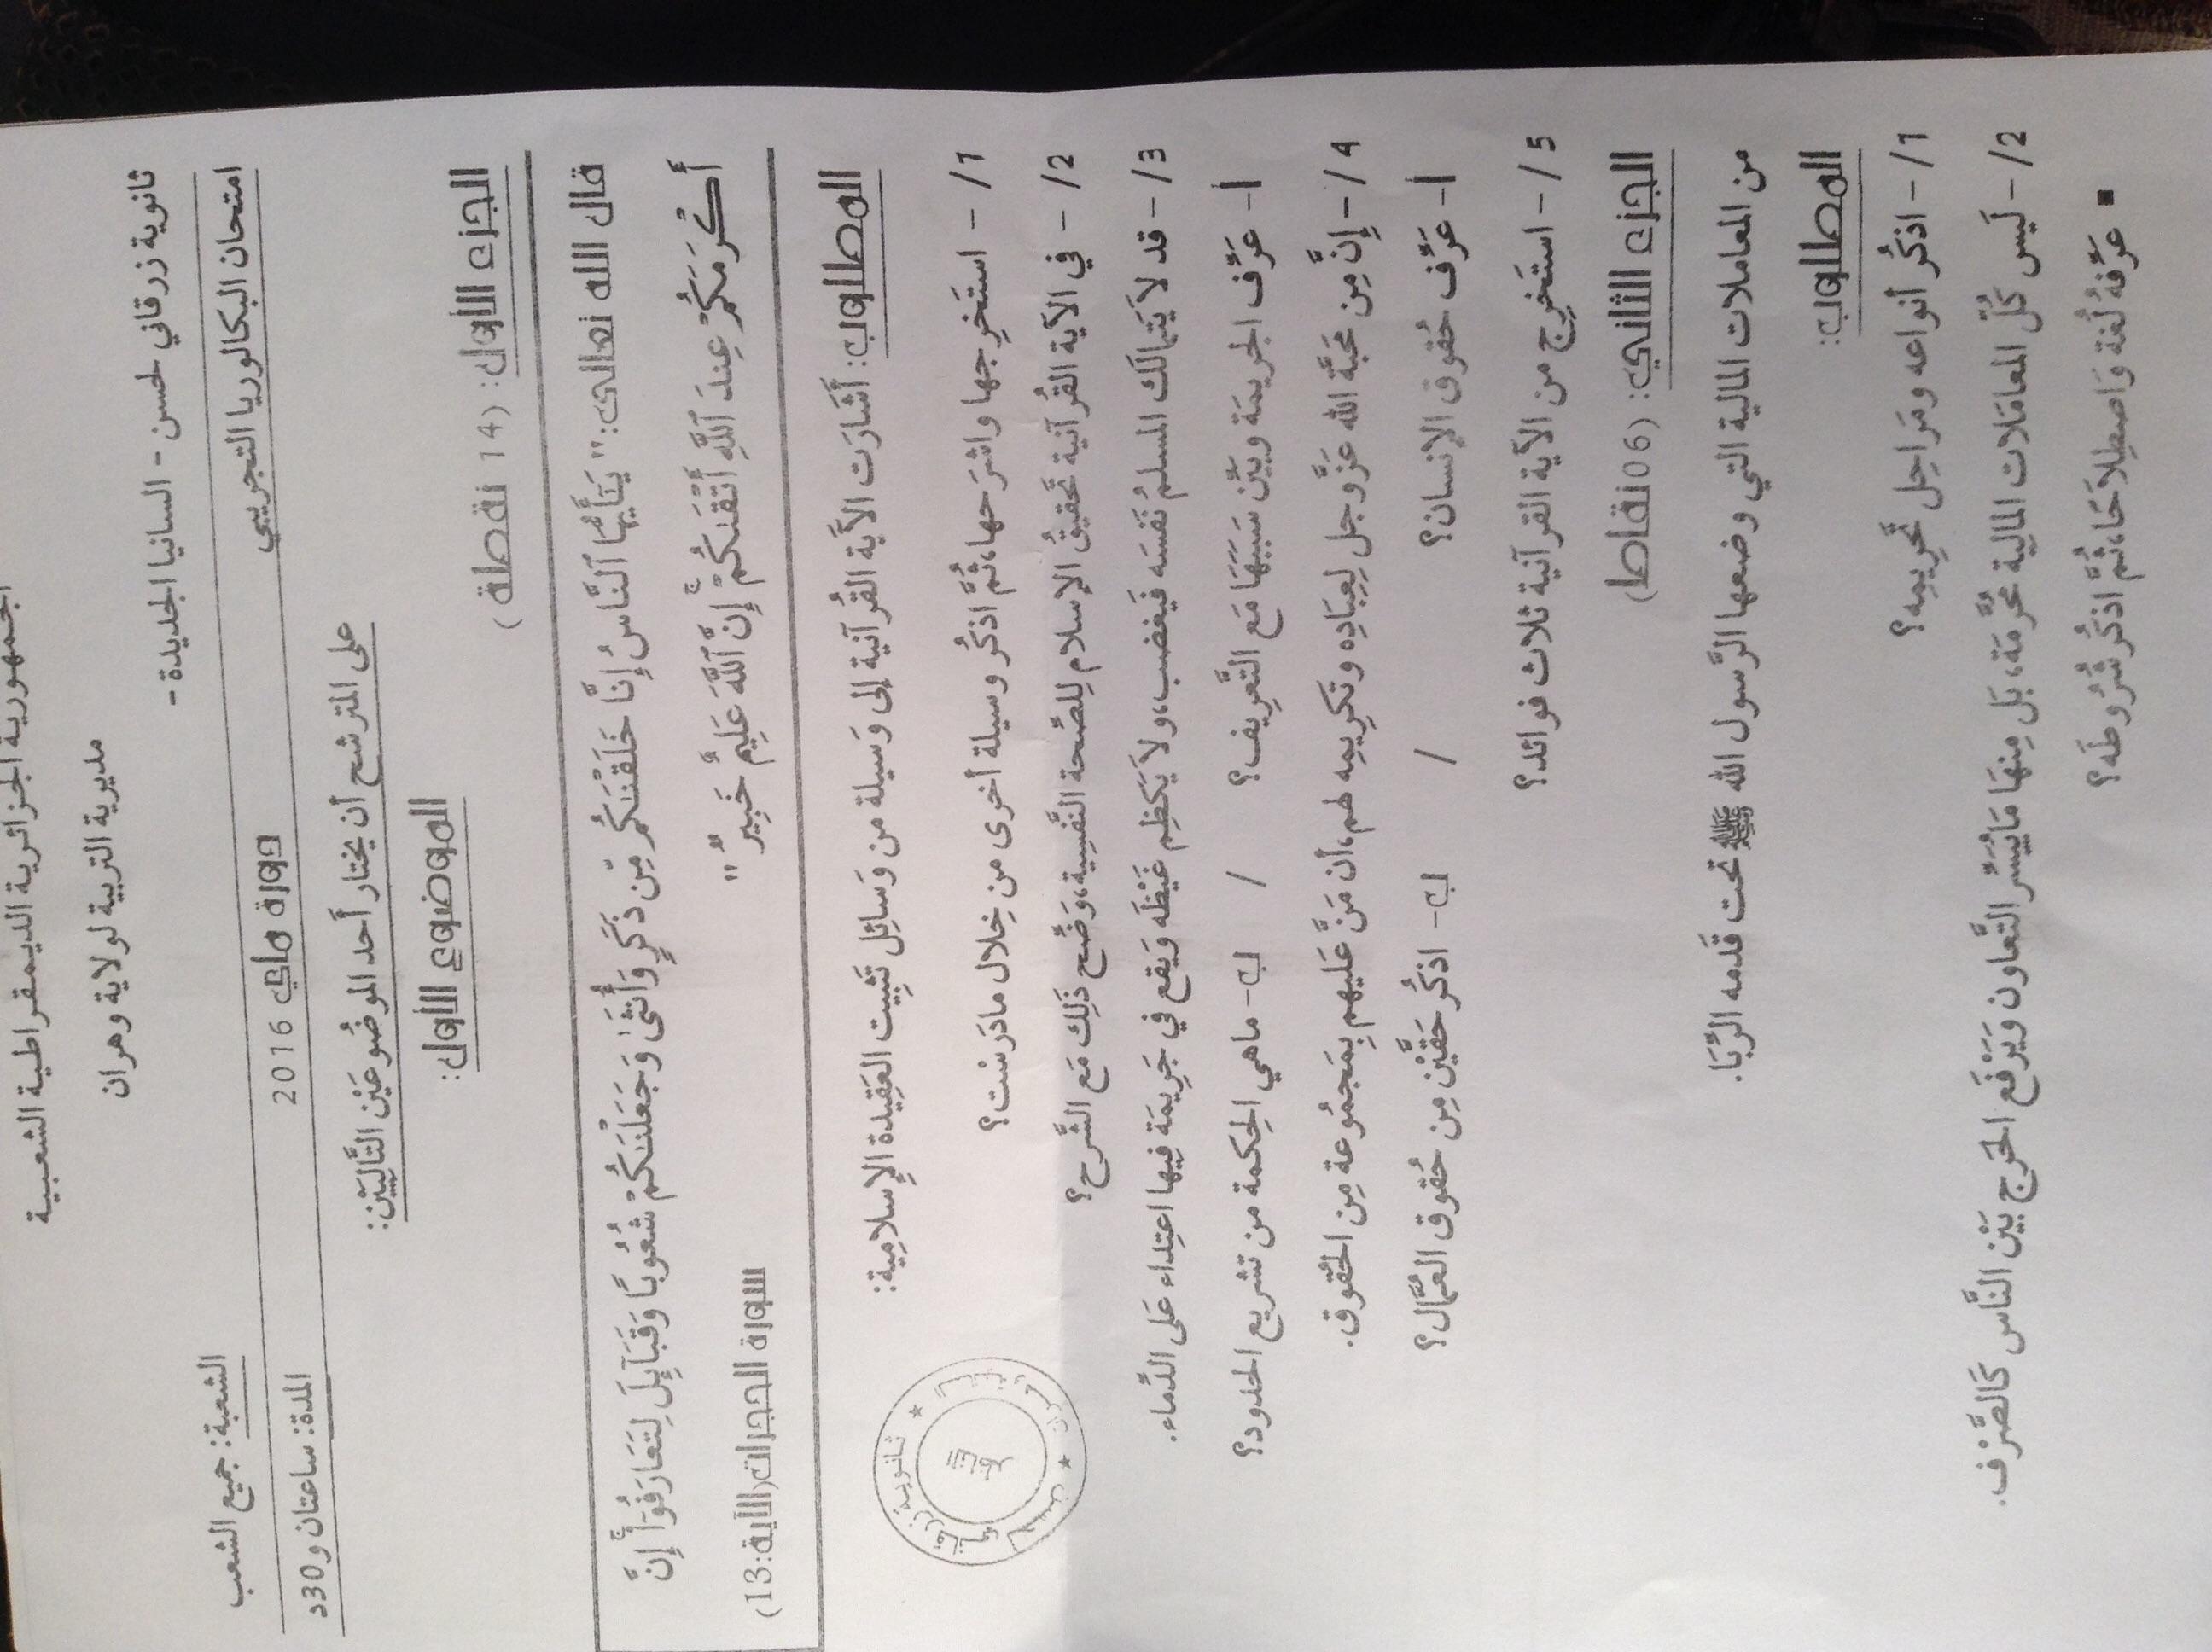 الجمهورية الجزائرية الديمقراطية الشعبية
مديرية التربية لولاية وهران
ثانوية زرقاني لحسن - السانيا الجديدة -
امتحان البكالوريا التجريبي دورة ماي 2016 الشعبة: جميع الشعب
المدة: ساعتان و30د
على المترشح أن يختار أَحد الموضُوعَيْن التَّالِيَيْن:
الموضوع الأول:
الجزء الأول: (14 نقطة)
قال الله تعالى: " يَٰٓأَيُّهَا ٱلنَّاسُ إِنَّا خَلَقْنَٰكُم مِّن ذَكَرٍ وَأُنثَىٰ وَجَعَلْنَٰكُمْ شُعُوبًا وَقَبَآئِلَ لِتَعَارَفُوٓا۟ ۚ إِنَّ
أَكْرَمَكُمْ عِندَ ٱللَّهِ أَتْقَىٰكُمْ ۚ إِنَّ ٱللَّهَ عَلِيمٌ خَبِيرٌ " سورة الحجرات(الآية:13)
المطلوب: أَشَارَت الآيَة القُرآنية إلى وَسيلة من وَسَائِل تَثبِيت العَقِيدة الإسلامِية:
1/ - استَخرِجها واشرَحها، ثُمَّ اذكُر وسيلة أخرى من خِلال مادَرسْت؟
2/ - في الآية القُرآنية تَحقيقُ الإسلام لِلصِّحة النَّفسِية، وَضِّح ذَلِك مَع الشَّرح؟
3/ - قد لاَ يَتَمالَك المسلمُ نَفسَه فَيَغضب، ولاَ يَكظِم غَيْظَه وَيَقع في جَرِيمَة فِيها اعتِداء عَلى الدِّماء.
أ- عَرِّف الجريمَة وبَيِّن سَبَبَهَا مَع التَّعرِيف؟ / ب- ماهي الحِكمة من تشريع الحدود؟
4/ - إنَّ مِن مَحَبَّة الله عَزَّ وجل لِعِبَادِه وتَكرِيمِه لهم، أن مَنَّ عَلَيهم بِمَجمُوعة مِن الحُقوق.
أ- عَرِّف حُقوق الإنسان؟ / ب- اذكُر حَقَّيْن مِن حُقوق العُمَّال؟
5/ - استَخرِج من الآية القرآنية ثلاث فوائد؟
الجزء الثاني: (06 نقاط)
من المعاملات المالية التي وضعها الرَّسول الله ﷺ تحت قَدَمه الرِّبَا.
المطلوب:
1/ - اذكُر أنواعه ومَراحِل تَحرِيمِه؟
2/ - لَيس كُلّ المعامَلات المالِية مُحَرَّمَة، بَل مِنهَا مَايُيَسِّر التَّعاون وَيَرْفَع الحَرج بَيْن النَّاس كَالصَّرْف.
▪ عَرِّفهُ لُغة وَاصطِلاَحًا، ثُمَّ اذكُر شُرُوطَه؟